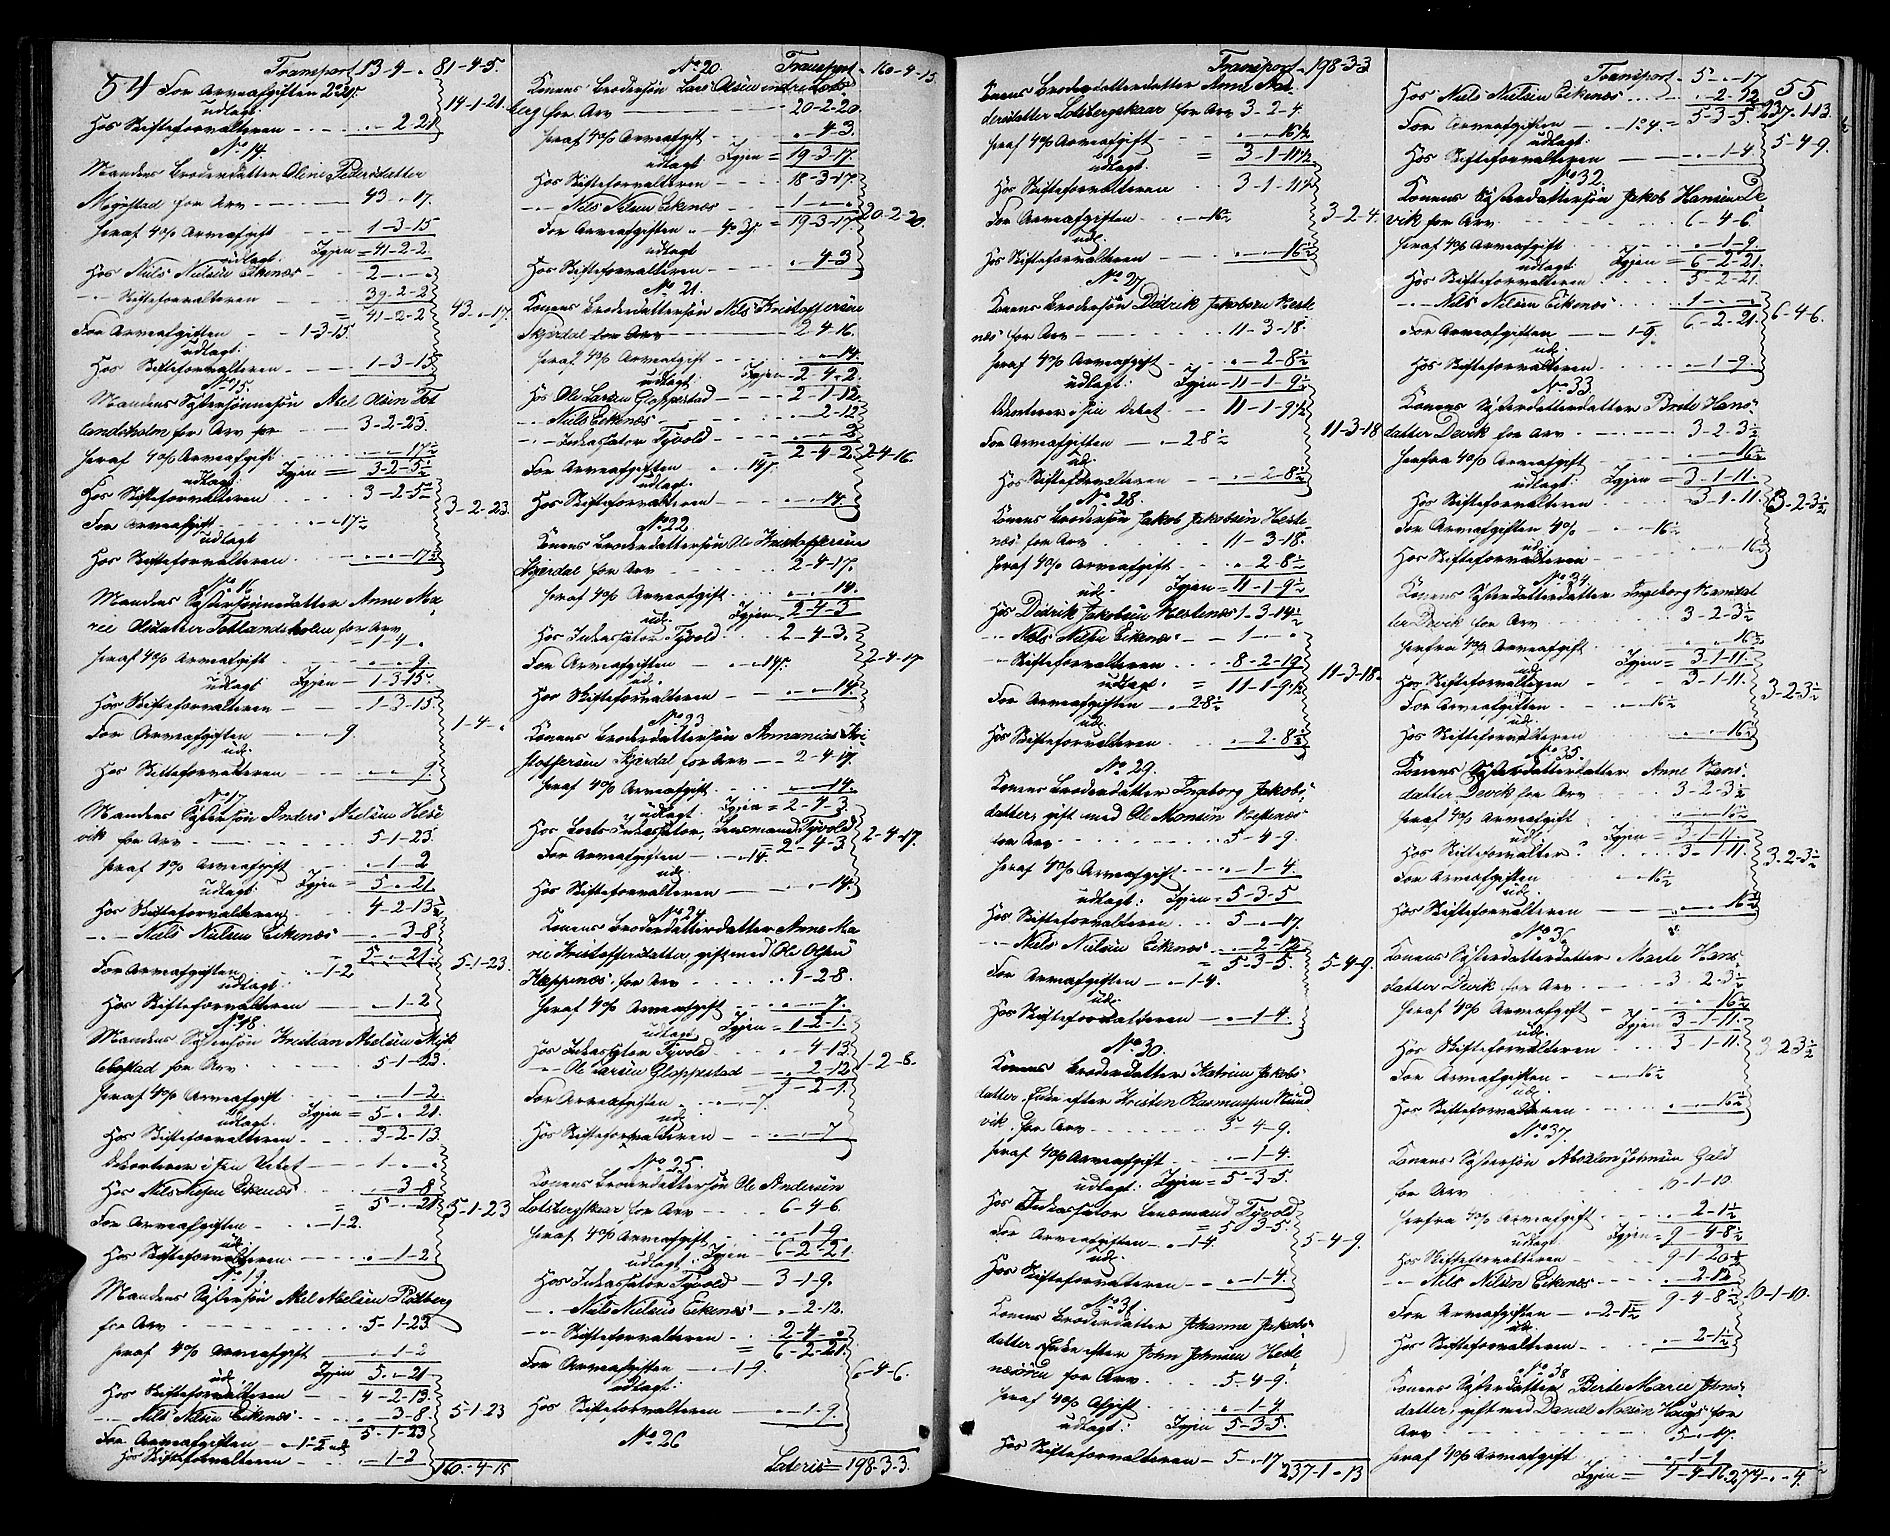 54
Transport 13-4-. 81-4-5.
For Arveafgiften 2-21.
udlagt 14-1-21.
Hos Skifteforvalteren . - 2-21
No 14.
Mandens Broderdatter Oline Pedersdatter
for Arv 43-.-17.
heraf 4% Arveafgift 1-3-15
udlagt Igjen = 41-2-2
Hos Niels Nielsen Eikenæs 2-.-.
- Skifteforvalteren 39-2-2
= 41-2-2 43-.-17.
For Arveafgiften 1-3-15.
udlagt:
Hos Skifteforvalteren 1-3-15
No 15.
Mandens Søstersønnesøn Abel Olsen Tot
landsholm for Arv 3-2-23.
heraf 4% Arveafgift .-.-17½
udlagt Igjen = 3-2-5½
Hos Skifteforvalteren 3-2-5½ 3-2-23.
For Arveafgift .-17½
udlagt
Hos Skifteforvalteren .-.-17½
No 16
Mandens Søstersønnedatter Anne Ma-
rie Olsdatter Totlandsholm for Arv
1-4-.
heraf 4% Arveafgift .-.-9
udlagt Igjen 1-3-15.
Hos Skifteforvalteren 1-3-15. 1-4-.
For Arveafgiften 9.
ud.
Hos Skifteforvalteren .-.-9.
No 17
Mandens Søstersøn Anders Abelsen
vik for Arv 5-1-23.
heraf 4% Arveafgift .-1-2
udlagt Igjen = 5-.-21
Hos Skifteforvalteren 4-2-13½
- Niels Nielsen Eikenæs .-3-8
5-.-21. 5-1-23.
For Arveafgiften .-1-2
udlagt:
Hos Skifteforvalteren .-1-2
No 18.
Mandens Søstersøn Kristian Abelsen
for Arv 5-1-23.
heraf 4% Arveafgift .-1-2
udlagt. Igjen = 5-.-21.
Hos Skifteforvalteren 3-2-13.
1-.-.
Hos Niels Nielsen Eikenæs .-3-8
= 5-.-21 5-1-23
For Arveafgiften .-1-2.
ud.
Hos Skifteforvalteren .-1-2
No 19.
Mandens Søstersøn Abel Abelsen Rødberg
for Arv 5-1-23.
heraf 4% Arveafgift .-1-2
ud. Igjen 5-.-21
Hos Skifteforvalteren 4-2-13.
- Niels Nielsen Eikenæs .-3-8. 5-1-23
5-1-23
For Arveafgiften .-1-2 ud
Hos Skifteforvalteren .-1-2
160-4-15
No 20. Transport 160-4-15
Konens Brodersøn Lars Olsen
berg for Arv 20-2-20.
heraf 4% Arveafgift .-4-3.
udlagt Igjen = 19-3-17.
Hos Skifteforvalteren 18-3-17.
- Niels Nielsen Eikenæs 1-.-.
= 19-3-17. 20-2-20.
For Arveafgiften .-4-3.
udlagt
Hos Skifteforvalteren .-4-3
No 21.
Konens Broderdattersøn Nils Kristoffersen
Skjerdal for Arv 2-4-16.
heraf 4% Arveafgift .-.-14.
udlagt: Igjen 2-4-2.
Hos Ole Larsen Gloppestad 2-1-12.
- Niels Eikenæs .-2-12.
- Inkassator Tyvold
= 2-4-2 2-4-16.
For Arveafgiften .-.14.
udlagt.
Hos Skifteforvalteren .-.-14.
No 22.
Konens Broderdattersøn Ole Kristoffersen
Skjerdal for Arv 2-4-17.
heraf 4% Arveafgift .-.-14.
ud. Igjen 2-4-3
Hos Inkassator Tyvold 2-4-3.
For Arveafgiften .-.14. 2-4-17
ud.
Hos Skifteforvalteren .-.-14.
No 23.
Konens Broderdattersøn Annanias Kri-
stoffersen Skjerdal for Arv 2-4-17.
heraf 4% Arveafgift .-.-14.
udlagt. Igjen = 2-4-3.
Hos Inkassator, Lensmand Tyvold
2-4-3 2-4-17.
For Arveafgiften .-.14.
ud.
Hos Skifteforvalteren .-.-14.
No 24.
Konens Broderdatterdatter Anne Ma-
rie Kristoffersdatter, gift med Ole Olsen
for Arv 1-2-8.
heraf 4% Arveafgift .-.-7.
udlagt Igjen = 1-2-1.
Hos Inkassator Tyvold .-4-13.
- Ole Larsen Gloppestad .-2-12. 1-2-8.
= 1-2-1.
For Arveafgiften .-.7.
ud.
Hos Skifteforvalteren .-.-7
No 25.
Konens Broderdattersøn Ole Andersen
Lotsbergskaar for Arv 6-4-6.
heraf 4% Arveafgift .-1-9.
udlagt: Igjen 6-2-21
Hos Inkassator Tyvold 3-1-9.
- Niels Nielsen Eikenæs .-2-12.
- Skifteforvalteren 2-4-.
= 6-2-21.
For Arveafgiften .-1-9. 6-4-6.
udlagt:
Hos Skifteforvalteren .-1-9.
No 26
Lateris = 198-3-3.
Transport 198-3-3
Konens Broderdatterdatter Anne
datter Lotsbergskaar for Arv 3-2-4.
heraf 4% Arveafgift .-.-16½
udlagt. = 3-1-11½
Hos Skifteforvalteren 3-1-11½
For Arveafgiften .-.16½ 3-2-4.
ud.
Hos Skifteforvalteren .-.-16½
No 27
Konens Brodersøn Didrik Jakobsen Heste
næs for Arv 11-3-18.
heraf 4% Arveafgift .-2-8½
udlagt: Igjen 11-1-9½
11-1-9½
For Arveafgiften .-2-8½ 11-3-18
ud.
Hos Skifteforvalteren .-2-8½
No 28.
Konens Brodersøn Jakob Jakobsen Heste-
næs for Arv 11-3-18.
heraf 4% Arveafgift .-2-8½
ud. Igjen = 11-1-9½
Hos Didrik Jakobsen Hestenæs 1-3-14½
- Niels Nielsen Eikenæs 1-.-.
- Skifteforvalteren 8-2-19
udlagt. = 11-1-9½ 11-3-18.
For Arveafgiften .-2-8½
ud.
Hos Skifteforvalteren .-2-8½
No 29.
Konens Broderdatter Ingeborg Jakobs-
datter, gift med Ole Monsen
for Arv 5-4-9.
heraf 4% Arveafgift .-1-4.
udlagt: Igjen = 5-3-5
Hos Skifteforvalteren 5-.-17.
- Niels Nielsen Eikenæs .-2-12
= 5-3-5. 5-4-9.
For Arveafgiften .-1-4.
ud.
Hos Skifteforvalteren .-1-4.
No 30.
Konens Broderdatter Katrine Jakobs-
datter Enke efter Kristen Rasmussen
vik, for Arv 5-4-9.
heraf 4% Arveafgift .-1-4.
udlagt: Igjen = 5-3-5.
Hos Inkassator Lensmand Tyvold
= 5-3-5.
For Arveafgiften .-1-4. 5-4-9.
ud.
Hos Skifteforvalteren .-1-4.
No 31.
Konens Broderdatter Johanne Jakobs-
datter Enke efter John Johnsen Heste
næsøren for Arv 5-4-9.
heraf 4% Afgift .-1-4.
udlagt: Igjen 5-3-5.
Hos Skifteforvalteren 5-.-17
237-1-13
55
Transport 5-.-17
Hos Niels Nielsen Eikenæs .-2-12
5-3-5. 237-1-13
For Arveafgiften .-1-4.
udlagt. 5-4-9.
Hos Skifteforvalteren .-1-4.
No 32.
Konens Søsterdattersøn Jakob Hansen De
vik for Arv 6-4-6.
heraf 4% Arveafgift .-1-9.
udlagt Igjen = 6-2-21.
Hos Skifteforvalteren 5-2-21.
- Niels Nielsen Eikenæs 1-.-.
6-2-21. 6-4-6.
For Arveafgiften 1-9.
ud.
Hos Skifteforvalteren .-1-9.
No 33.
Konens Søsterdatterdatter Brite Hans-
datter Devik for Arv 3-2-3½
herfra 4% Arveafgift .-.-16½
udlagt: Igjen = 3-1-11.
Hos Skifteforvalteren 3-1-11. 3-2-3½
For Arveafgiften 4% .-.16½
ud.
Hos Skifteforvalteren .-.-16½
No 34.
Konens Søsterdatterdatter Ingeborg Hansdat
ter Devik for Arv 3-2-3½
herfra 4% Arveafgift .-.-16½
ud. Igjen = 3-1-11.
Hos Skifteforvalteren 3-1-11. 3-2-3½
For Arveafgiften .-.16½
ud.
Hos Skifteforvalteren .-.-16½
No 35.
Konens Søsterdatterdatter Anne Hans-
datter Devik for Arv 3-2-3½
heraf 4% Arveafgift .-.-16½
ud. Igjen = 3-1-11.
Hos Skifteforvalteren 3-1-11. 3-2-3½
For Arveafgiften .-.16½
ud.
Hos Skifteforvalteren .-.-16½
No 36.
Konens Søsterdatterdatter Marte Hans-
datter Devik for Arv 3-2-3½
heraf 4% Arveafgift .-.-16½
ud. Igjen 3-1-11.
Hos Skifteforvalteren 3-1-11. 3-2-3½
For Arveafgiften .-.16½
ud.
Hos Skifteforvalteren .-.-16½
No 37.
Konens Søstersøn Absalon Johnsen
for Arv 10-1-10.
herfra 4% Arveafgift .-2-1½
udlagt Igjen = 9-4-8½
Hos Skifteforvalteren 9-1-20½
- Niels Nielsen Eikenæs .-2-12
= 9-4-8½ 10-1-10.
For Arveafgiften .-2-1½
ud.
Hos Skifteforvalteren .-2-1½
No 38
Konens Søsterdatter Berte Marie Johns-
datter, gift med Daniel Nielsen for
Arv 5-.-17.
heraf 4% Arveafgift .-1-1
Igjen = 4-4-16. 274-.-4.